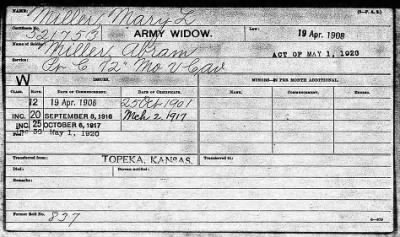 NAME: Miller, Mary L (3-P. A. S.)
Certificate No. 321753 ARMY WIDOW. Law: 19 Apr. 1908
Name of Soldier: Miller Abram ACT OF MAY 1, 1920
Service: Co C 12" Mo V Cav
W ISSUES. MINORS—IN PER MONTH ADDITIONAL.
CLASS. RATE. DATE OF COMMENCEMENT. DATE OF CERTIFICATE. NAME. COMMENCEMENT. ENDING.
12 19 Apr. 1908 25 Oct 1901
INC. 20 SEPTEMBER 8, 1916 Mch 2, 1917
INC. 25 OCTOBER 6, 1917
Inc 30 May 1, 1920
Transferred from: TOPEKA, KANSAS. Transferred to:
Died: Bureau notified:
Remarks:
Former Roll No. 837